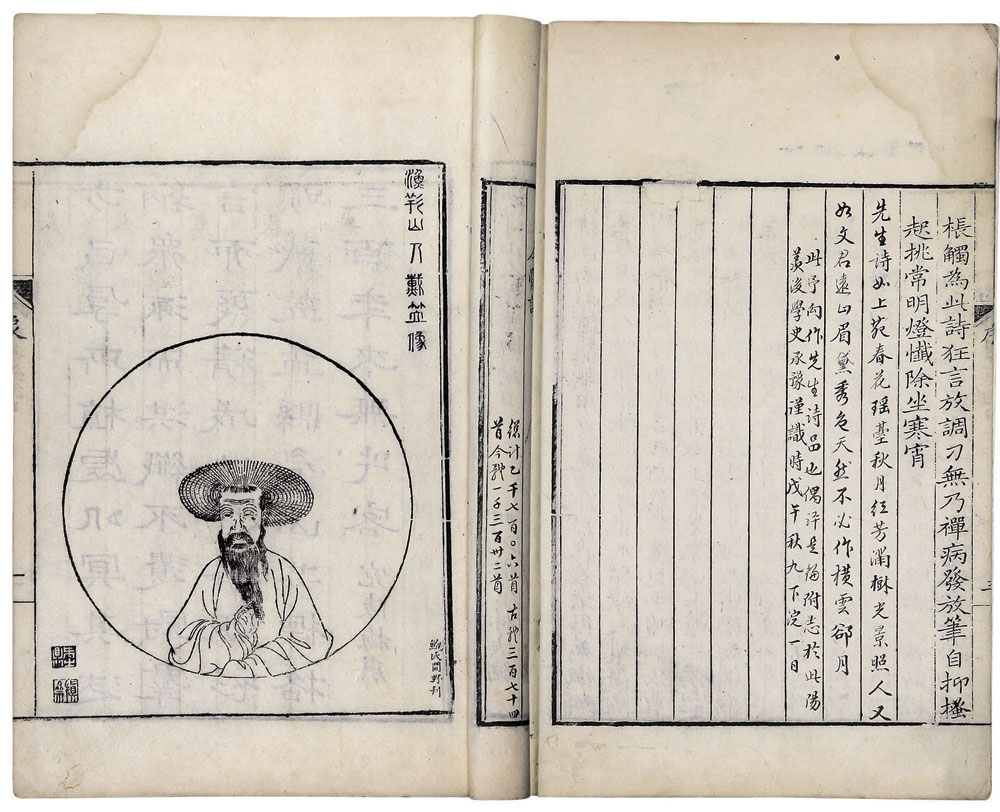 棖觸為此詩狂言放調刁無乃禪病發放筆自抑搔
起挑常明燈懺除坐寒宵
先生詩如上苑春花瑤臺秋月紅芳滿樹光景照人又
如文君遠山眉黛秀色天然不必作橫雲卻月
此予向作先生詩品也偶評是編附志於此陽
羨後學史承豫謹識時戊午秋九下浣一日
序
三
綜計乙千七百〇六首 古體三百七十四
首今體一千三百卅二首
漁洋山人戴笠像